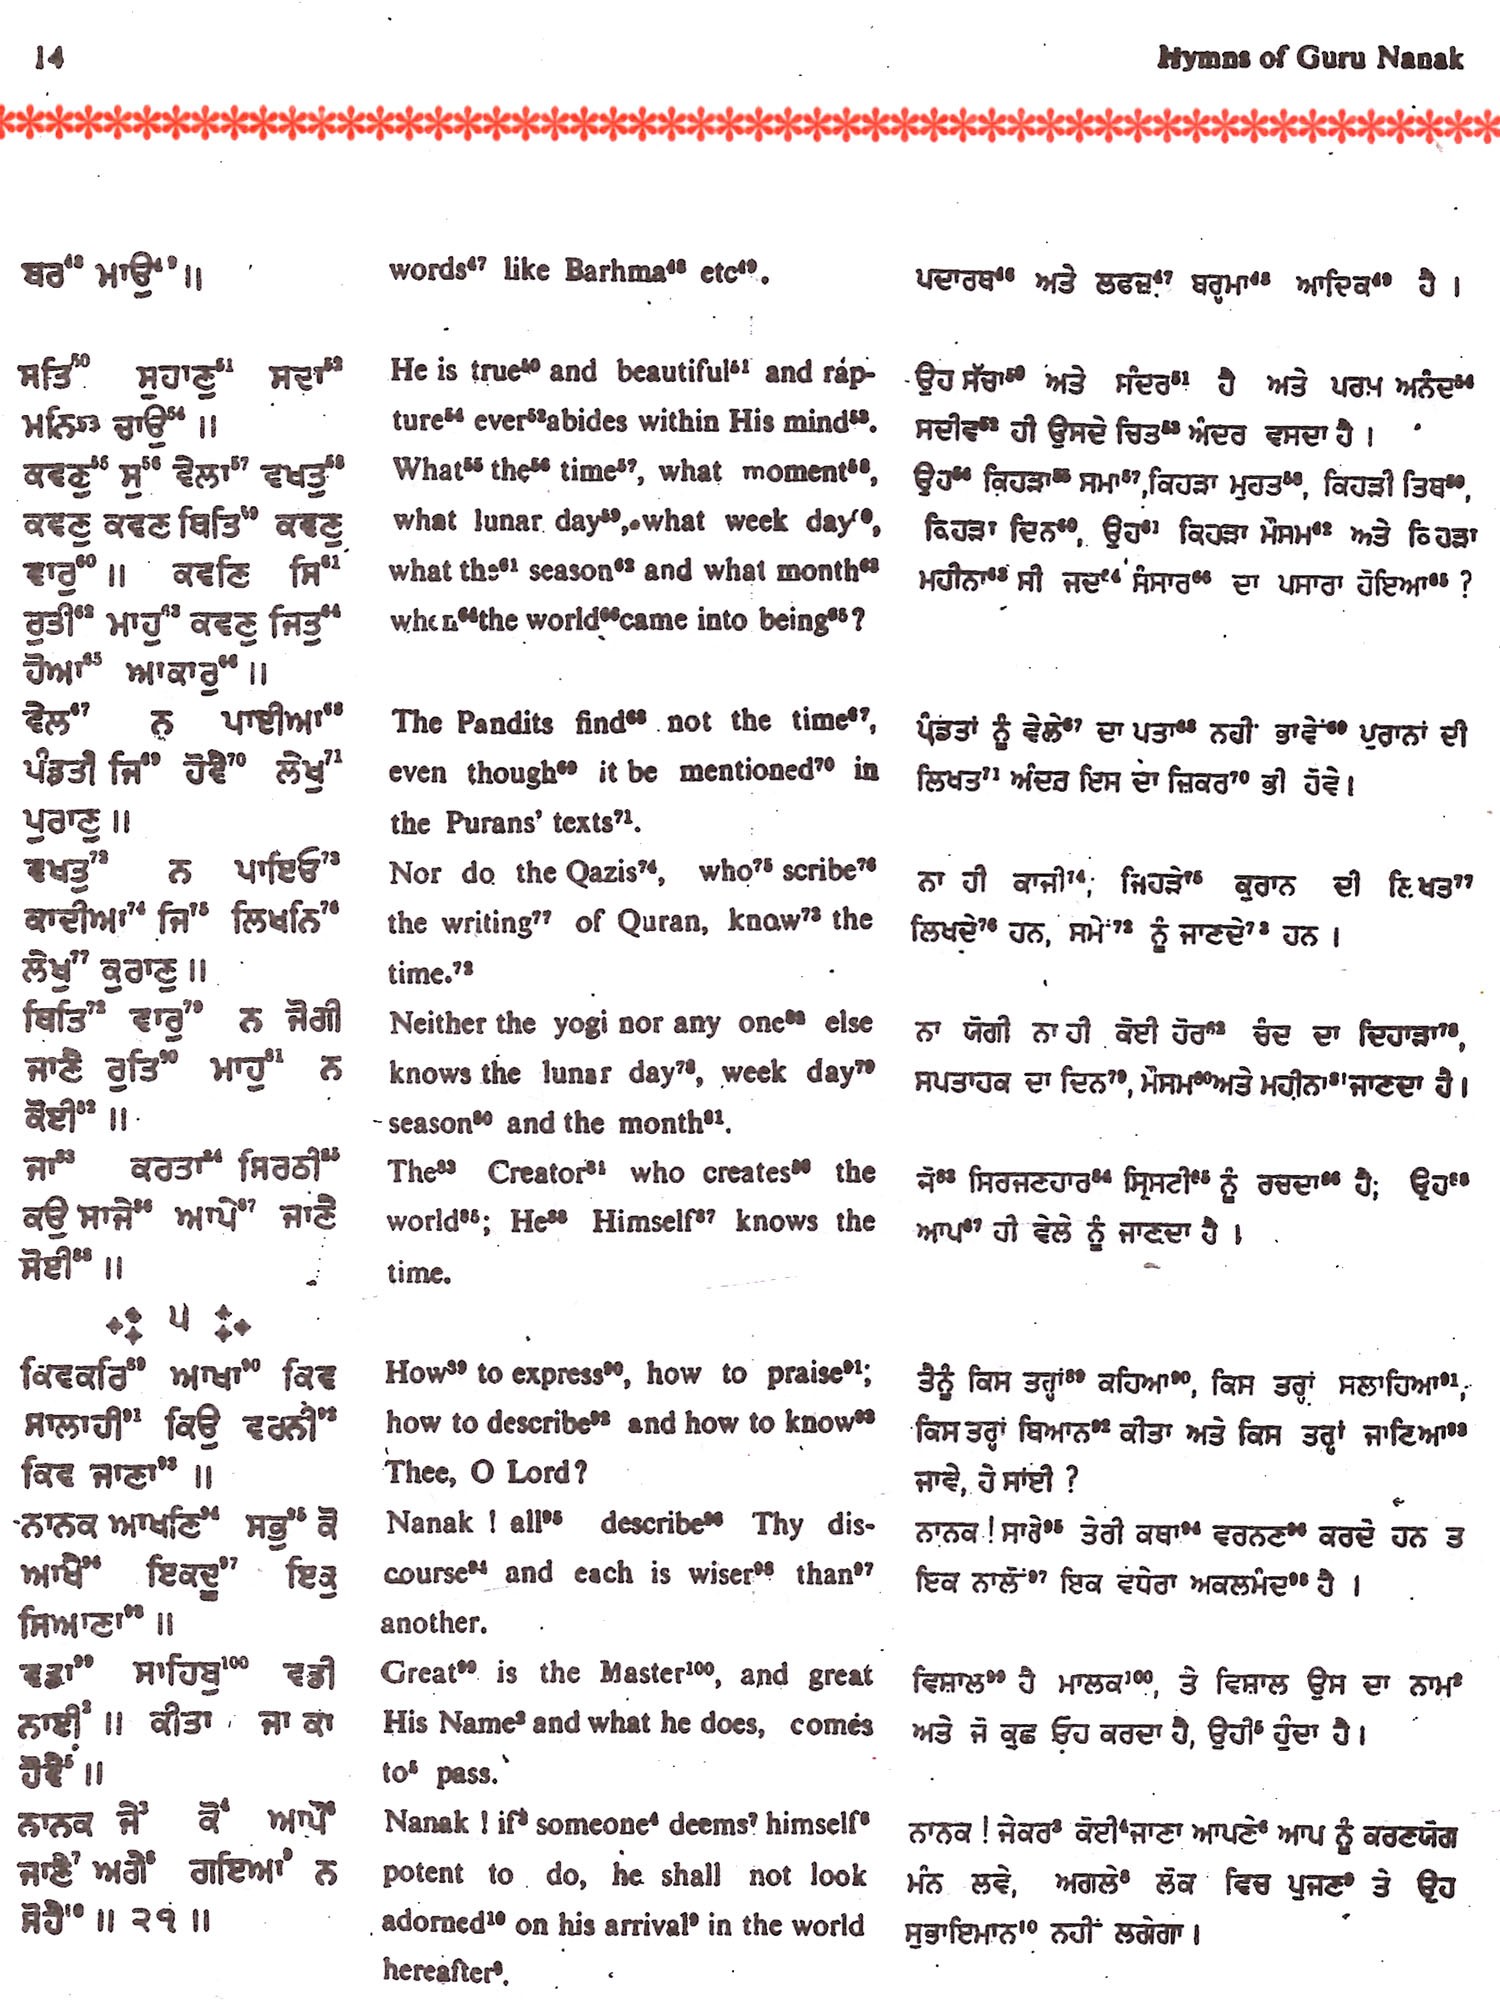 14
Hymns of Guru Nanak
ਬਰ⁴⁸ ਮਾਉ⁴⁹ ॥
ਸਤਿ⁵⁰ ਸੁਹਾਣੁ⁵¹ ਸਦਾ⁵²
ਮਨਿ⁵³ ਚਾਉ⁵⁴ ॥
ਕਵਣੁ⁵⁵ ਸੁ⁵⁶ ਵੇਲਾ⁵⁷ ਵਖਤੁ⁵⁸
ਕਵਣੁ ਕਵਣ ਥਿਤਿ⁵⁹ ਕਵਣੁ
ਵਾਰੁ⁶⁰ ॥ ਕਵਣਿ ਸਿ⁶¹
ਰੁਤੀ⁶² ਮਾਹੁ⁶³ ਕਵਣੁ ਜਿਤੁ⁶⁴
ਹੋਆ⁶⁵ ਆਕਾਰੁ⁶⁶ ॥
ਵੇਲ⁶⁷ ਨ ਪਾਈਆ⁶⁸
ਪੰਡਤੀ ਜਿ⁶⁹ ਹੋਵੈ⁷⁰ ਲੇਖੁ⁷¹
ਪੁਰਾਣੁ ॥
ਵਖਤੁ⁷² ਨ ਪਾਇਓ⁷³
ਕਾਦੀਆ⁷⁴ ਜਿ⁷⁵ ਲਿਖਨਿ⁷⁶
ਲੇਖੁ⁷⁷ ਕੁਰਾਣੁ ॥
ਥਿਤਿ⁷⁸ ਵਾਰੁ⁷⁹ ਨ ਜੋਗੀ
ਜਾਣੈ ਰੁਤਿ⁸⁰ ਮਾਹੁ⁸¹ ਨ
ਕੋਈ⁸² ॥
ਜਾ⁸³ ਕਰਤਾ⁸⁴ ਸਿਰਠੀ⁸⁵
ਕਉ ਸਾਜੇ⁸⁶ ਆਪੇ⁸⁷ ਜਾਣੈ
ਸੋਈ⁸⁸ ॥
੫
ਕਿਵਕਰਿ⁸⁹ ਆਖਾ⁹⁰ ਕਿਵ
ਸਾਲਾਹੀ⁹¹ ਕਿਉ ਵਰਨੀ⁹²
ਕਿਵ ਜਾਣਾ⁹³ ॥
ਨਾਨਕ ਆਖਣਿ⁹⁴ ਸਭੁ⁹⁵ ਕੋ
ਆਖੈ⁹⁶ ਇਕਦੂ⁹⁷ ਇਕੁ
ਸਿਆਣਾ⁹⁸ ॥
ਵਡਾ⁹⁹ ਸਾਹਿਬੁ¹⁰⁰ ਵਡੀ
ਨਾਈ² ॥ ਕੀਤਾ ਜਾ ਕਾ
ਹੋਵੈ⁵ ॥
ਨਾਨਕ ਜੇ³ ਕੋ⁴ ਆਪੌ⁶
ਜਾਣੈ⁷ ਅਗੈ⁸ ਗਇਆ⁹ ਨ
ਸੋਹੈ¹⁰ ॥ ੨੧ ॥
words⁴⁷ like Barhma⁴⁸ etc⁴⁹.
He is true⁵⁰ and beautiful⁵¹ and rap-
ture⁵⁴ ever⁵² abides within His mind⁵³.
What⁵⁵ the⁵⁶ time⁵⁷, what moment⁵⁸,
what lunar day⁵⁹, what week day⁶⁰,
what the⁶¹ season⁶² and what month⁶³
when⁶⁴ the world⁶⁶ came into being⁶⁵?
The Pandits find⁶⁸ not the time⁶⁷,
even though⁶⁹ it be mentioned⁷⁰ in
the Purans' texts⁷¹.
Nor do the Qazis⁷⁴, who⁷⁵ scribe⁷⁶
the writing⁷⁷ of Quran, know⁷³ the
time.⁷²
Neither the yogi nor any one⁸² else
knows the lunar day⁷⁸, week day⁷⁹
season⁸⁰ and the month⁸¹.
The⁸³ Creator⁸⁴ who creates⁸⁶ the
world⁸⁵; He⁸⁸ Himself⁸⁷ knows the
time.
How⁸⁹ to express⁹⁰, how to praise⁹¹;
how to describe⁹² and how to know⁹³
Thee, O Lord?
Nanak ! all⁹⁵ describe⁹⁶ Thy dis-
course⁹⁴ and each is wiser⁹⁸ than⁹⁷
another.
Great⁹⁹ is the Master¹⁰⁰, and great
His Name² and what he does, comes
to⁵ pass.
Nanak ! if³ someone⁴ deems⁷ himself⁶
potent to do, he shall not look
adorned¹⁰ on his arrival⁹ in the world
hereafter⁸.
ਪਦਾਰਥ⁴⁶ ਅਤੇ ਲਫਜ਼⁴⁷ ਬਰ੍ਹਮਾ⁴⁸ ਆਦਿਕ⁴⁹ ਹੈ ।
ਉਹ ਸੱਚਾ⁵⁰ ਅਤੇ ਸੰਦਰ⁵¹ ਹੈ ਅਤੇ ਪਰਮ ਅਨੰਦ⁵⁴
ਸਦੀਵ⁵² ਹੀ ਉਸਦੇ ਚਿਤ⁵³ ਅੰਦਰ ਵਸਦਾ ਹੈ ।
ਉਹ⁵⁶ ਕਿਹੜਾ⁵⁵ ਸਮਾ⁵⁷, ਕਿਹੜਾ ਮੁਹਤ⁵⁸, ਕਿਹੜੀ ਤਿਥ⁵⁹,
ਕਿਹੜਾ ਦਿਨ⁶⁰, ਉਹ⁶¹ ਕਿਹੜਾ ਮੌਸਮ⁶² ਅਤੇ ਕਿਹੜਾ
ਮਹੀਨਾ⁶³ ਸੀ ਜਦ⁶⁴ ਸੰਸਾਰ⁶⁶ ਦਾ ਪਸਾਰਾ ਹੋਇਆ⁶⁵ ?
ਪੰਡਤਾਂ ਨੂੰ ਵੇਲੇ⁶⁷ ਦਾ ਪਤਾ⁶⁸ ਨਹੀਂ ਭਾਵੇਂ⁶⁹ ਪੁਰਾਨਾਂ ਦੀ
ਲਿਖਤ⁷¹ ਅੰਦਰ ਇਸ ਦਾ ਜ਼ਿਕਰ⁷⁰ ਭੀ ਹੋਵੇ ।
ਨਾ ਹੀ ਕਾਜੀ⁷⁴; ਜਿਹੜੇ⁷⁵ ਕੁਰਾਨ ਦੀ ਲਿਖਤ⁷⁷
ਲਿਖਦੇ⁷⁶ ਹਨ, ਸਮੇਂ⁷² ਨੂੰ ਜਾਣਦੇ⁷³ ਹਨ ।
ਨਾ ਯੋਗੀ ਨਾ ਹੀ ਕੋਈ ਹੋਰ⁸² ਚੰਦ ਦਾ ਦਿਹਾੜਾ⁷⁸,
ਸਪਤਾਹਕ ਦਾ ਦਿਨ⁷⁹, ਮੌਸਮ⁸⁰ ਅਤੇ ਮਹੀਨਾ⁸¹ ਜਾਣਦਾ ਹੈ ।
ਜੋ⁸³ ਸਿਰਜਣਹਾਰ⁸⁴ ਸ੍ਰਿਸਟੀ⁸⁵ ਨੂੰ ਰਚਦਾ⁸⁶ ਹੈ; ਉਹ⁸⁸
ਆਪ⁸⁷ ਹੀ ਵੇਲੇ ਨੂੰ ਜਾਣਦਾ ਹੈ ।
ਤੈਨੂੰ ਕਿਸ ਤਰ੍ਹਾਂ⁸⁹ ਕਹਿਆ⁹⁰, ਕਿਸ ਤਰ੍ਹਾਂ ਸਲਾਹਿਆ⁹¹,
ਕਿਸ ਤਰ੍ਹਾਂ ਬਿਆਨ⁹² ਕੀਤਾ ਅਤੇ ਕਿਸ ਤਰ੍ਹਾਂ ਜਾਣਿਆ⁹³
ਜਾਵੇ, ਹੇ ਸਾਂਈ ?
ਨਾਨਕ ! ਸਾਰੇ⁹⁵ ਤੇਰੀ ਕਥਾ⁹⁴ ਵਰਨਣ⁹⁶ ਕਰਦੇ ਹਨ ਤੇ
ਇਕ ਨਾਲੋਂ⁹⁷ ਇਕ ਵਧੇਰਾ ਅਕਲਮੰਦ⁹⁸ ਹੈ ।
ਵਿਸ਼ਾਲ⁹⁹ ਹੈ ਮਾਲਕ¹⁰⁰, ਤੇ ਵਿਸ਼ਾਲ ਉਸ ਦਾ ਨਾਮ²
ਅਤੇ ਜੋ ਕੁਛ ਓਹ ਕਰਦਾ ਹੈ, ਉਹੀ⁵ ਹੁੰਦਾ ਹੈ ।
ਨਾਨਕ ! ਜੇਕਰ³ ਕੋਈ⁴ ਜਾਣਾ ਆਪਣੇ⁶ ਆਪ ਨੂੰ ਕਰਣਯੋਗ
ਮੰਨ ਲਵੇ, ਅਗਲੇ⁸ ਲੋਕ ਵਿਚ ਪੁਜਣ⁹ ਤੇ ਉਹ
ਸੁਭਾਇਮਾਨ¹⁰ ਨਹੀਂ ਲਗੇਗਾ ।